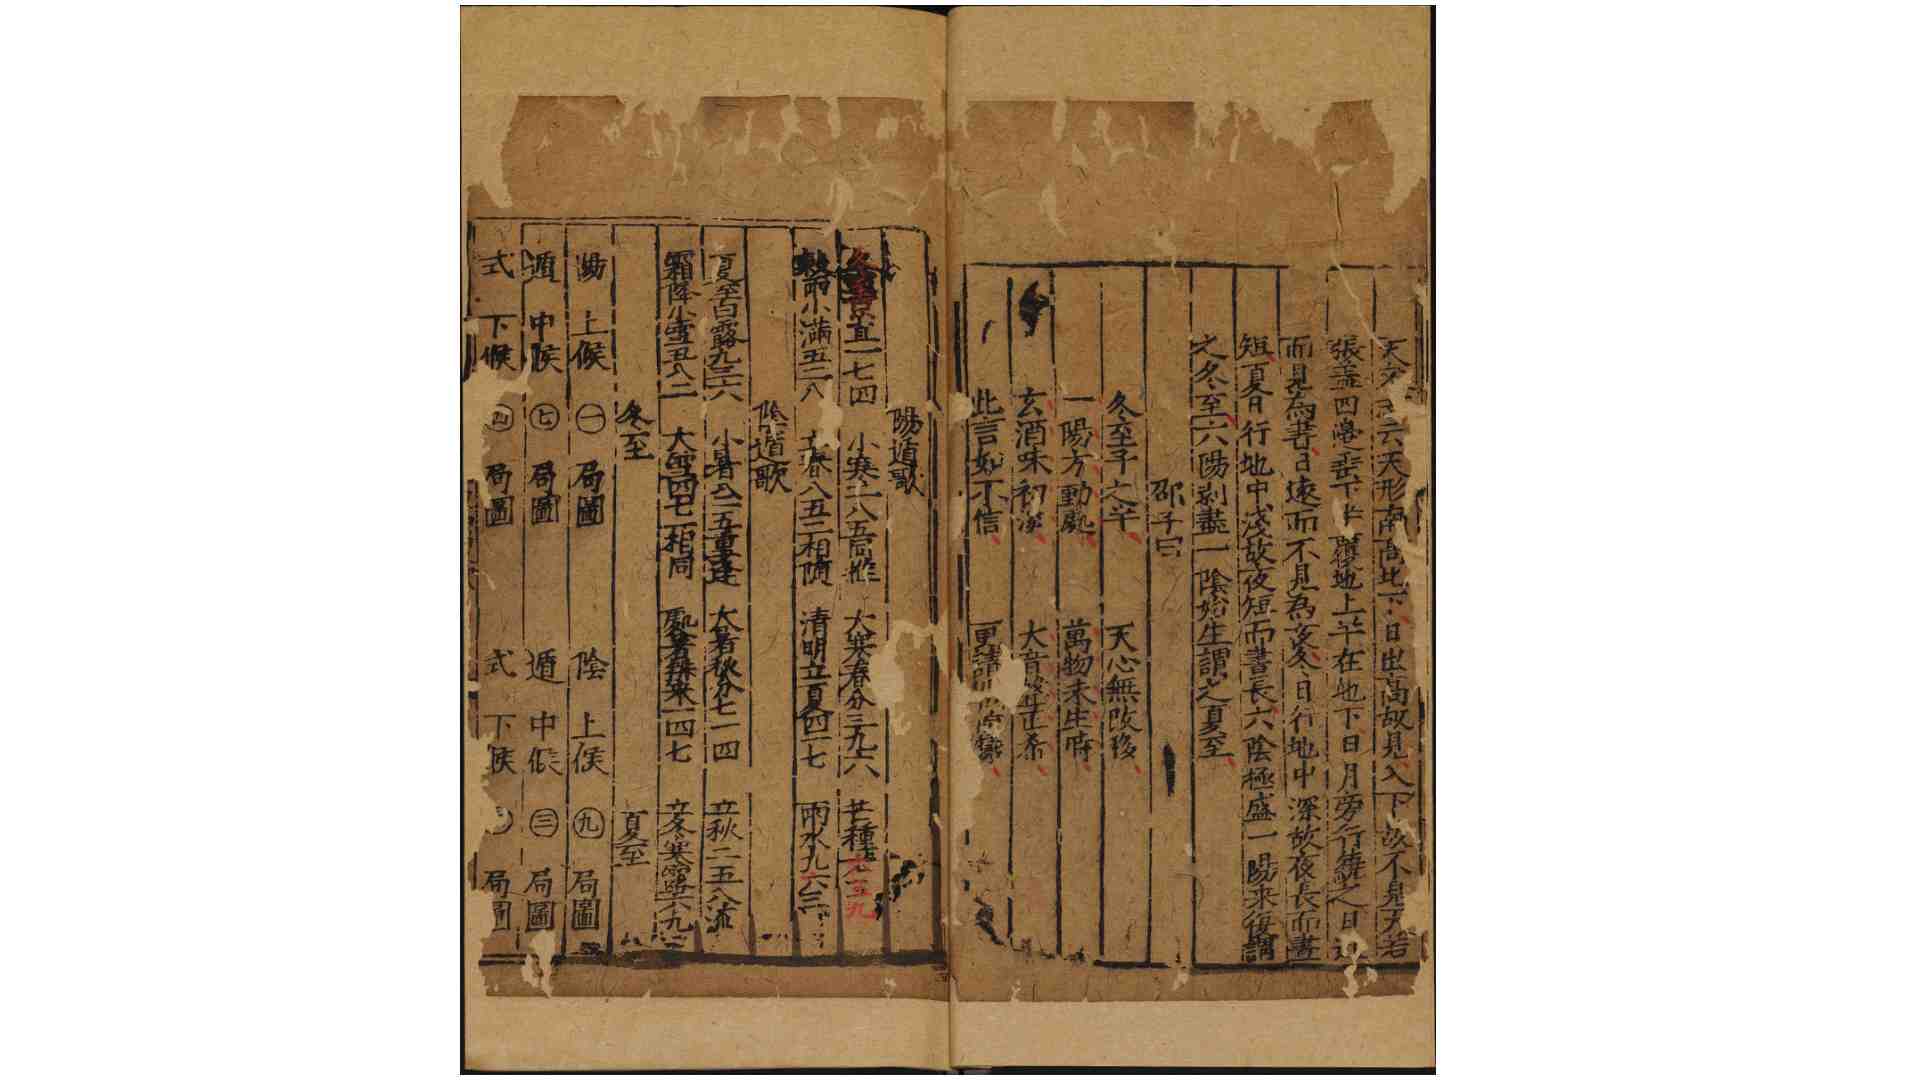 天文志云天形南高北下日出高故見入下故不見天若
張蓋四邊垂下半覆地上半在地下日月旁行繞之日近
而見為晝日遠而不見為夜冬日行地中深故夜長而晝
短夏日行地中淺故夜短而晝長六陰極盛一陽来復謂
之冬至六陽剥盡一陰始生謂之夏至
邵子曰
冬至子之半 天心無改移
一陽方動處 萬物未生時
玄酒味初淡 大音聲正希
此言如不信 更請問
陽遁歌
冬至 一七四 小寒二八五同推 大寒春分三九六 芒種六三九
穀雨小滿五二八 立春八五二相隨 清明立夏四一七 雨水九六三
陰遁歌
夏至白露九三六 小暑八二五重逢 大暑秋分七一四 立秋二五八流
霜降小雪五八二 大雪四七一相同 處暑 一四七 立冬寒露六九
冬至 夏至
陽 上候 ㊀ 局圖 陰 上候 ㊈ 局圖
遁 中候 ㊆ 局圖 遁 中候 ㊂ 局圖
式 下候 ㊃ 局圖 式 下候 局圖